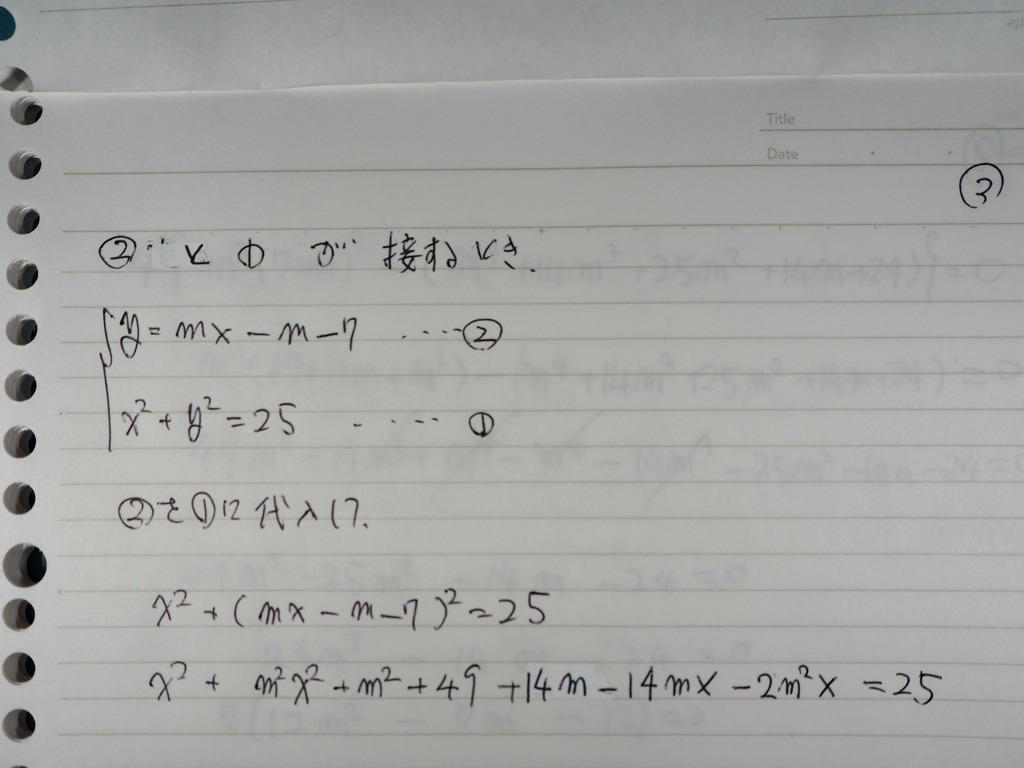 Title
Date
③
②と①が接するとき.
y = mx - m - 7 ‥‥②
x² + y² = 25 ‥‥‥ ①
②を①に代入して.
x² + (mx - m - 7)² = 25
x² + m²x² + m² + 49 + 14m - 14mx - 2m²x = 25